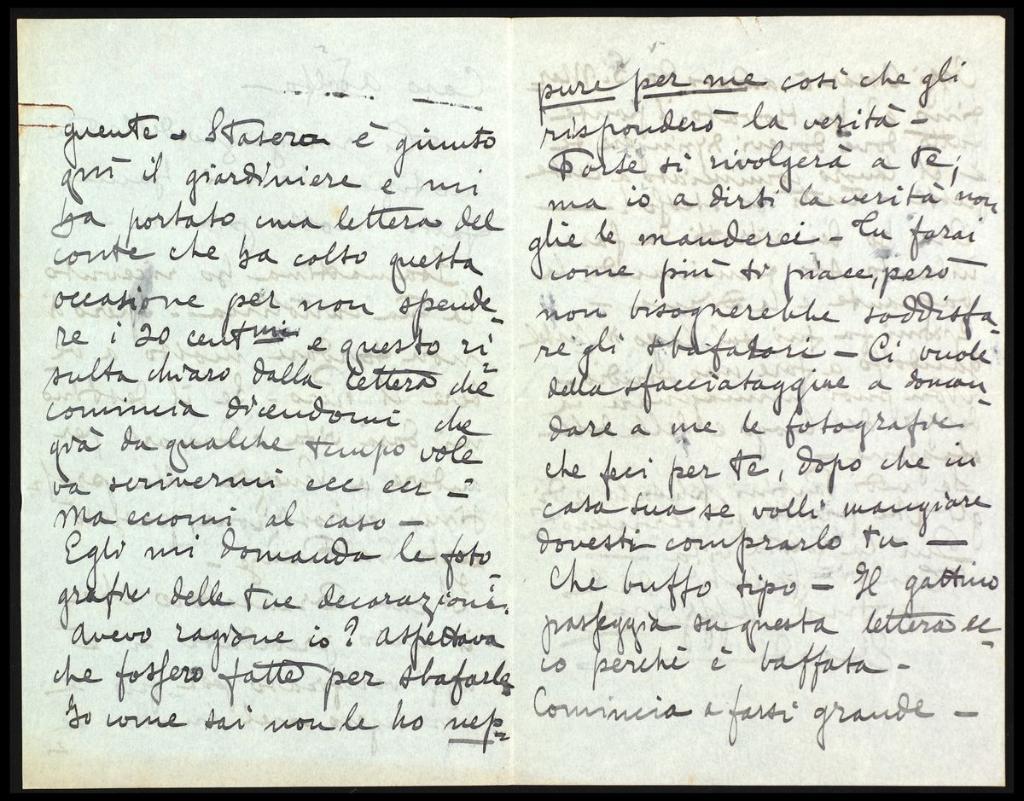 guente - Stasera è giunto
quì il giardiniere e mi
ha portato una lettera del
conte che ha colto questa
occasione per non spende-
re i 20 centmi e questo ri-
sulta chiaro dalla lettera che
comincia dicendomi che
già da qualche tempo vole
va scrivermi ecc ecc -
Ma eccomi al caso -
Egli mi domanda le foto-
grafie delle tue decorazioni.
Avevo ragione io? Aspettava
che fossero fatte per sbafarle
Io come sai non le ho nep-
pure per me così che gli
risponderò la verità -
Forse si rivolgerà a te,
ma io a dirti la verità non
glie le manderei - Tu farai
come più ti piace, però
non bisognerebbe soddisfa-
re gli sbafatori - Ci vuole
della sfacciataggine a doman-
dare a me le fotografie
che feci per te, dopo che in
casa sua se volli mangiare
dovesti comprarlo tu -
Che buffo tipo - Il gattino
passeggia su questa lettera ec
co perchè è baffata -
Comincia a farsi grande -